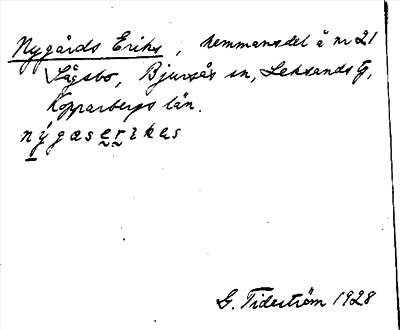 Nygårds Eriks, hemmansdel å nr 21
Sågsbo, Bjursås sn, Leksands tg,
Kopparbergs län.
nýgaserikas
G. Tideström 1928